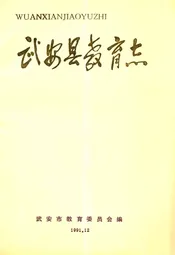 WUANXIANJIAOYUZHI
武安县教育志
武安市教育委员会编
1991.12